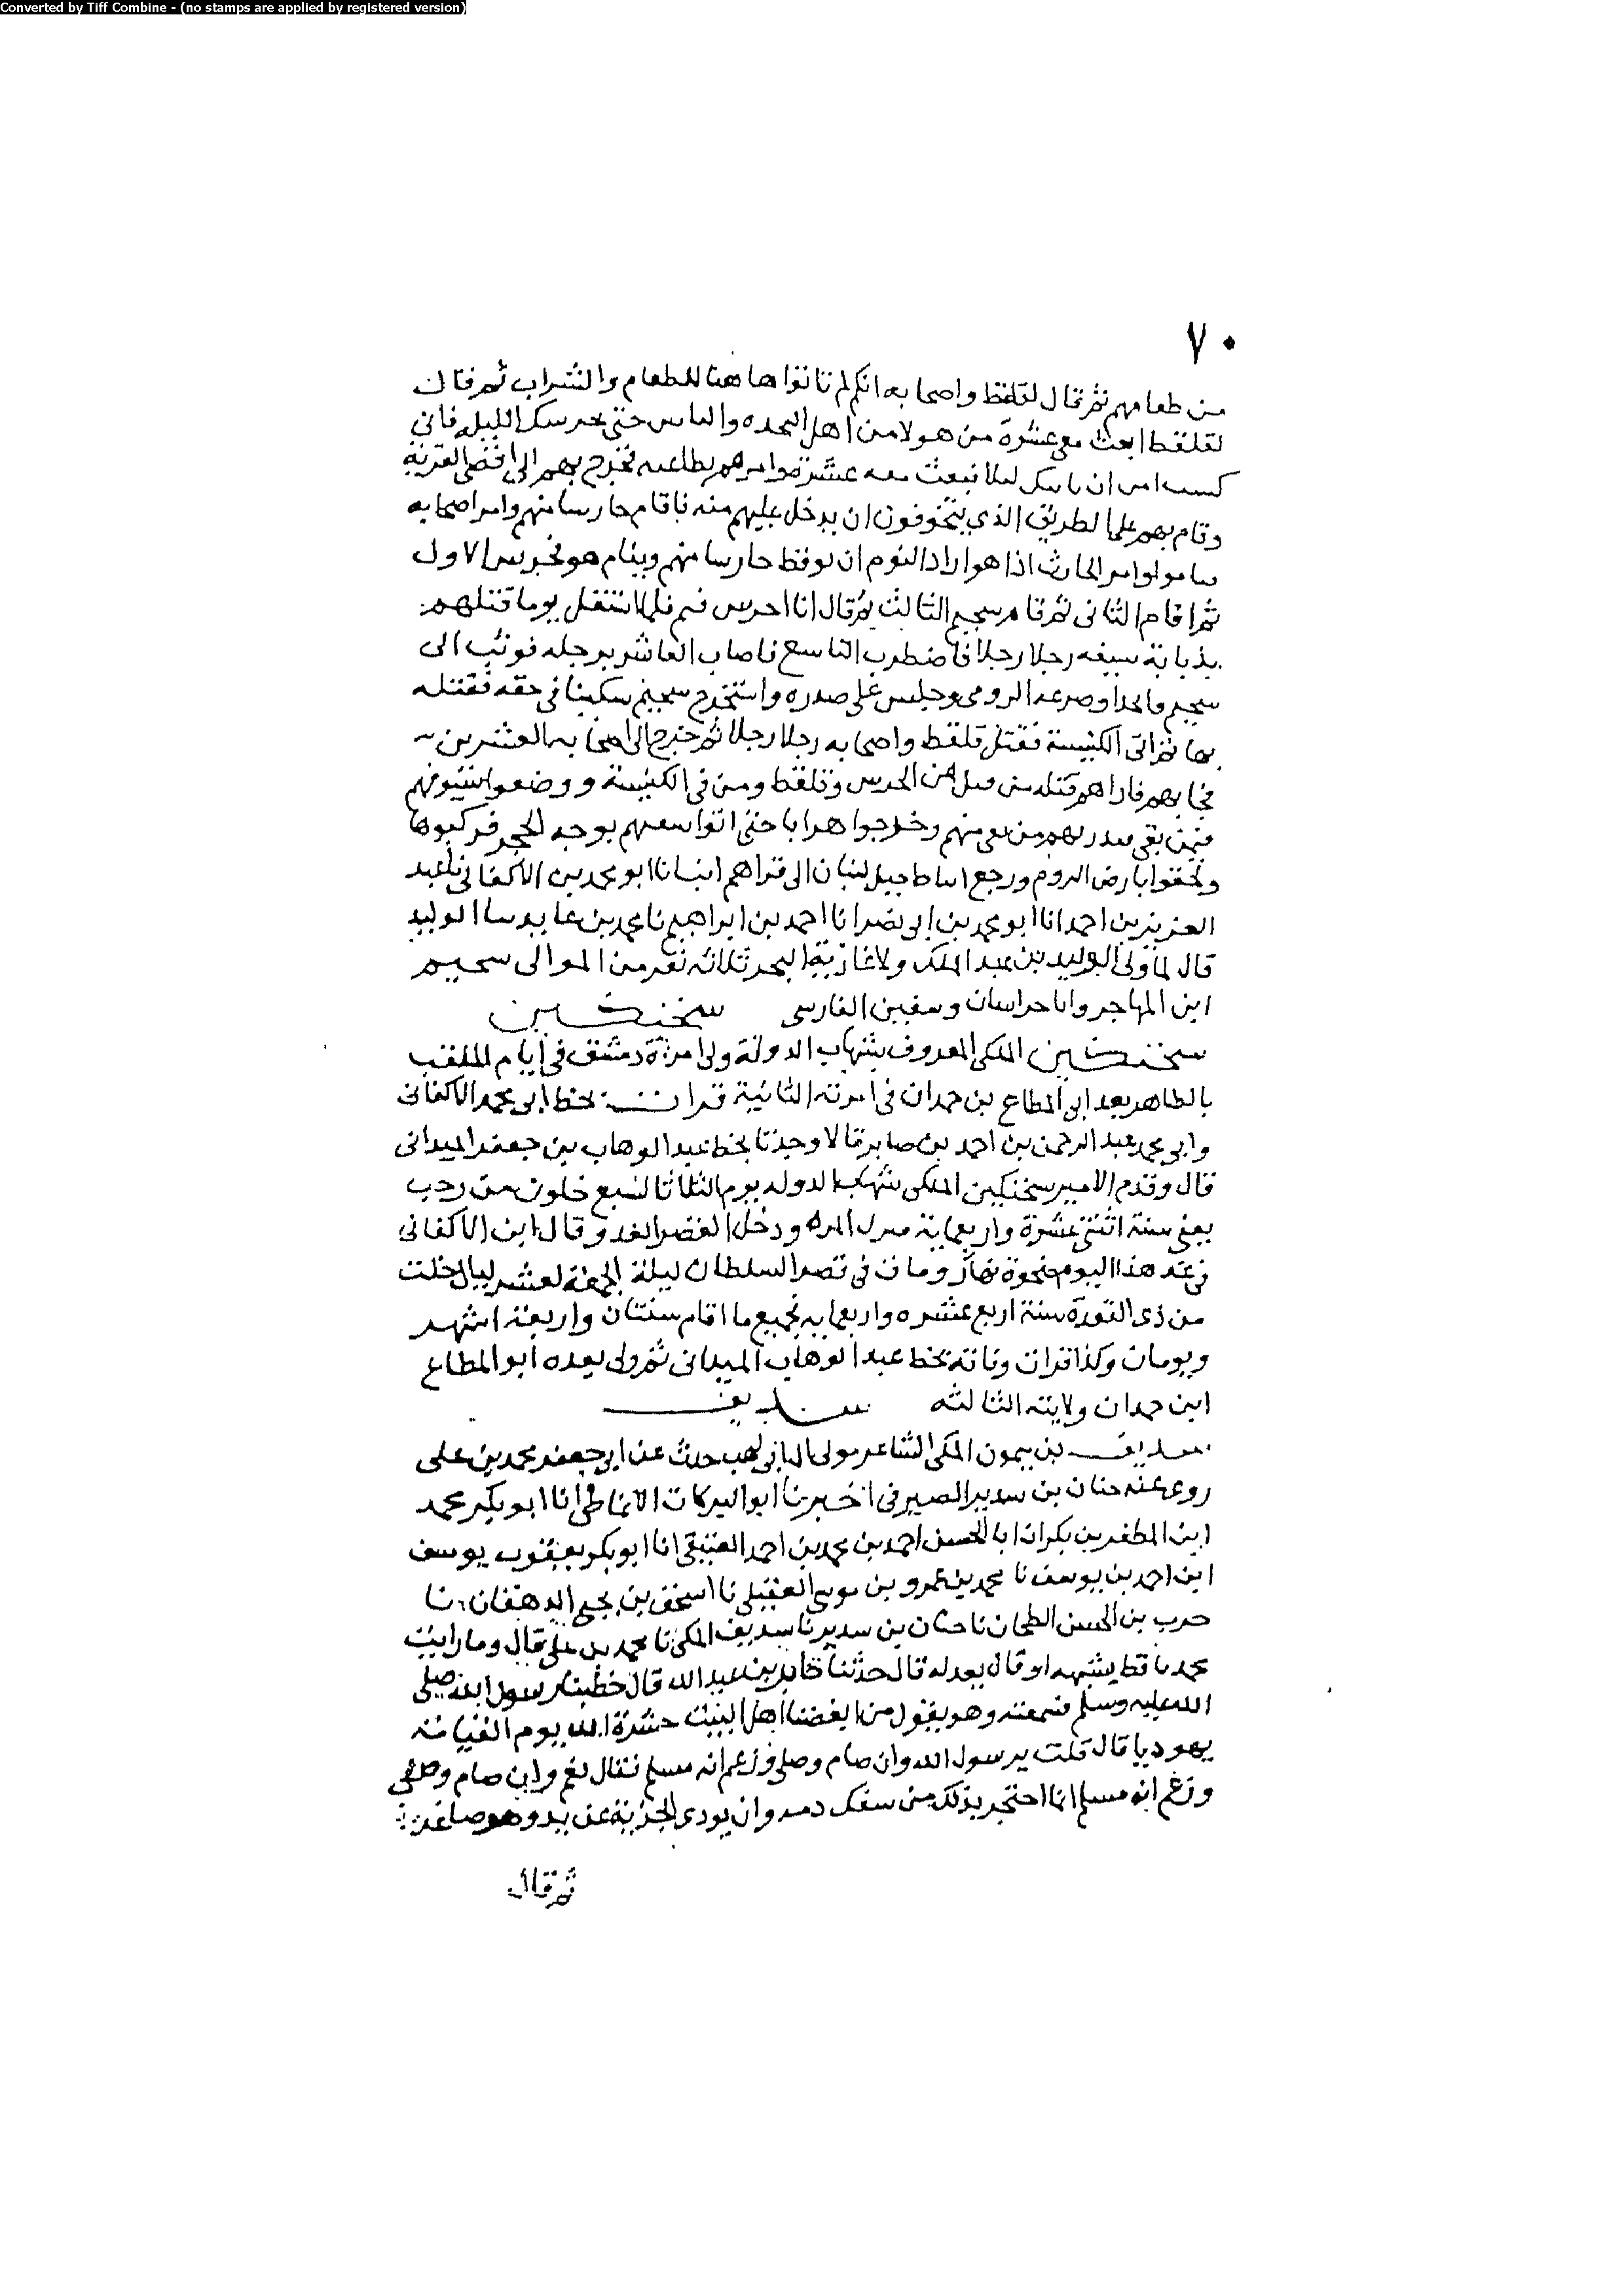 Converted by Tiff Combine - (no stamps are applied by registered version)
٧٠
من طعامهم ثم قال لقلقط واصحابه انكم لم تاتوا هاهنا للطعام والشراب ثم قال
لقلقط ابعث معي عشرة من هولا من اهل النجده والباس حتى نحرسك الليله فاني
ان فبعث معه عشرة وامرهم بطاعته فخرج بهم الى اقصى القرية
وقام بهم على الطريق الذي يتخوفون ان يدخل عليهم منه فاقام حارسا منهم وامر اصحابه
فناموا وامر الحارث اذا هو اراد النوم ان يوقظ حارسا منهم وينام هو فحرس الاول
ثم اقام الثاني ثم قام سحيم الثالث ثم قال انا احرس فنم فلما استثقل نوما قتلهم
بذبابة سيفه رجلا رجلا فاضطرب التاسع فاصاب العاشر برجله فوثب الى
سحيم فاتحدا وصرعه الرومي وجلس على صدره واستخرج سحيم سكينا في خفه فقتله
بها ثم اتى الكنيسة فقتل قلقط واصحابه رجلا رجلا ثم خرج الى اصحابه العشرين
فجا بهم فاراهم قتله من قتل من الحرس وقلقط ومن في الكنيسة ووضعوا سيوفهم
فيمن بقي بهم من بقي منهم وخرجوا هرابا حتى اتوا سفنهم بوجه الحجر فركبوها
ولحقوا بارض الروم ورجع انباط جبل لبنان الى قراهم انبانا ابو محمد بن الاكفاني نا عبد
العزيز بن احمد انا ابو محمد بن ابي نصر انا احمد بن ابراهيم نا محمد بن عايد نا الوليد
قال لما ولي الوليد بن عبد الملك ولا غازية البحر ثلاثه نفر من الموالي سحيم
ابن المهاجر وابا خراسان وسفين الفارسي سختكين
سختكين الملكي المعروف بشهاب الدولة ولي امرة دمشق في ايام الملقب
بالظاهر بعد ابي المطاع بن حمدان في امرته الثانية قرات بخط ابي محمد الاكفاني
وابي محمد عبد الرحمن بن احمد بن صابر قالا وجدنا بخط عبد الوهاب بن جعفر الميداني
قال وقدم الامير سختكين الملكي شهاب الدوله يوم الثلاثا لسبع خلون من رجب
يعني سنة اثنتي عشرة واربعماية فنزل المزه ودخل القصر الغد وقال ابن الاكفاني
في غد هذا اليوم ضحوة نهار ومات في قصر السلطان ليلة الجمعة لعشر ليال خلت
من ذي القعدة سنة اربع عشره واربعمايه فجميع ما اقام سنتان واربعة اشهر
ويومان وكذا قرات وفاته بخط عبد الوهاب الميداني ثم ولي بعده ابو المطاع
ابن حمدان ولايته الثالثه سديف
سديف بن ميمون المكي الشاعر مولى ال ابي لهب حدث عن ابي جعفر محمد بن علي
روى عنه حنان بن سدير الصيرفي اخبرنا ابو البركات الانماطي انا ابو بكر محمد
ابن المظفر بن بكران انا ابا الحسن احمد بن محمد بن احمد العتيقي انا ابو بكر يعقوب يوسف
ابن احمد بن يوسف نا محمد بن عمرو بن موسى العقيلي نا اسحق بن يحيى الدهقان نا
حرب بن الحسن الطحان نا حنان بن سدير نا سديف المكي نا محمد بن علي قال وما رايت
محمديا قط يشبهه او قال يعدله قال حدثنا جابر بن عبد الله قال خطبنا رسول الله صلى
الله عليه وسلم فسمعته وهو يقول من ابغضنا اهل البيت حشره الله يوم القيامة
يهوديا قال قلت يرسول الله وان صام وصلى وزعم انه مسلم فقال نعم وان صام وصلى
وزعم انه مسلم انما احتجر بذلك من سفك دمه وان يودي الجزية عن يد وهو صاغر
ثم قال